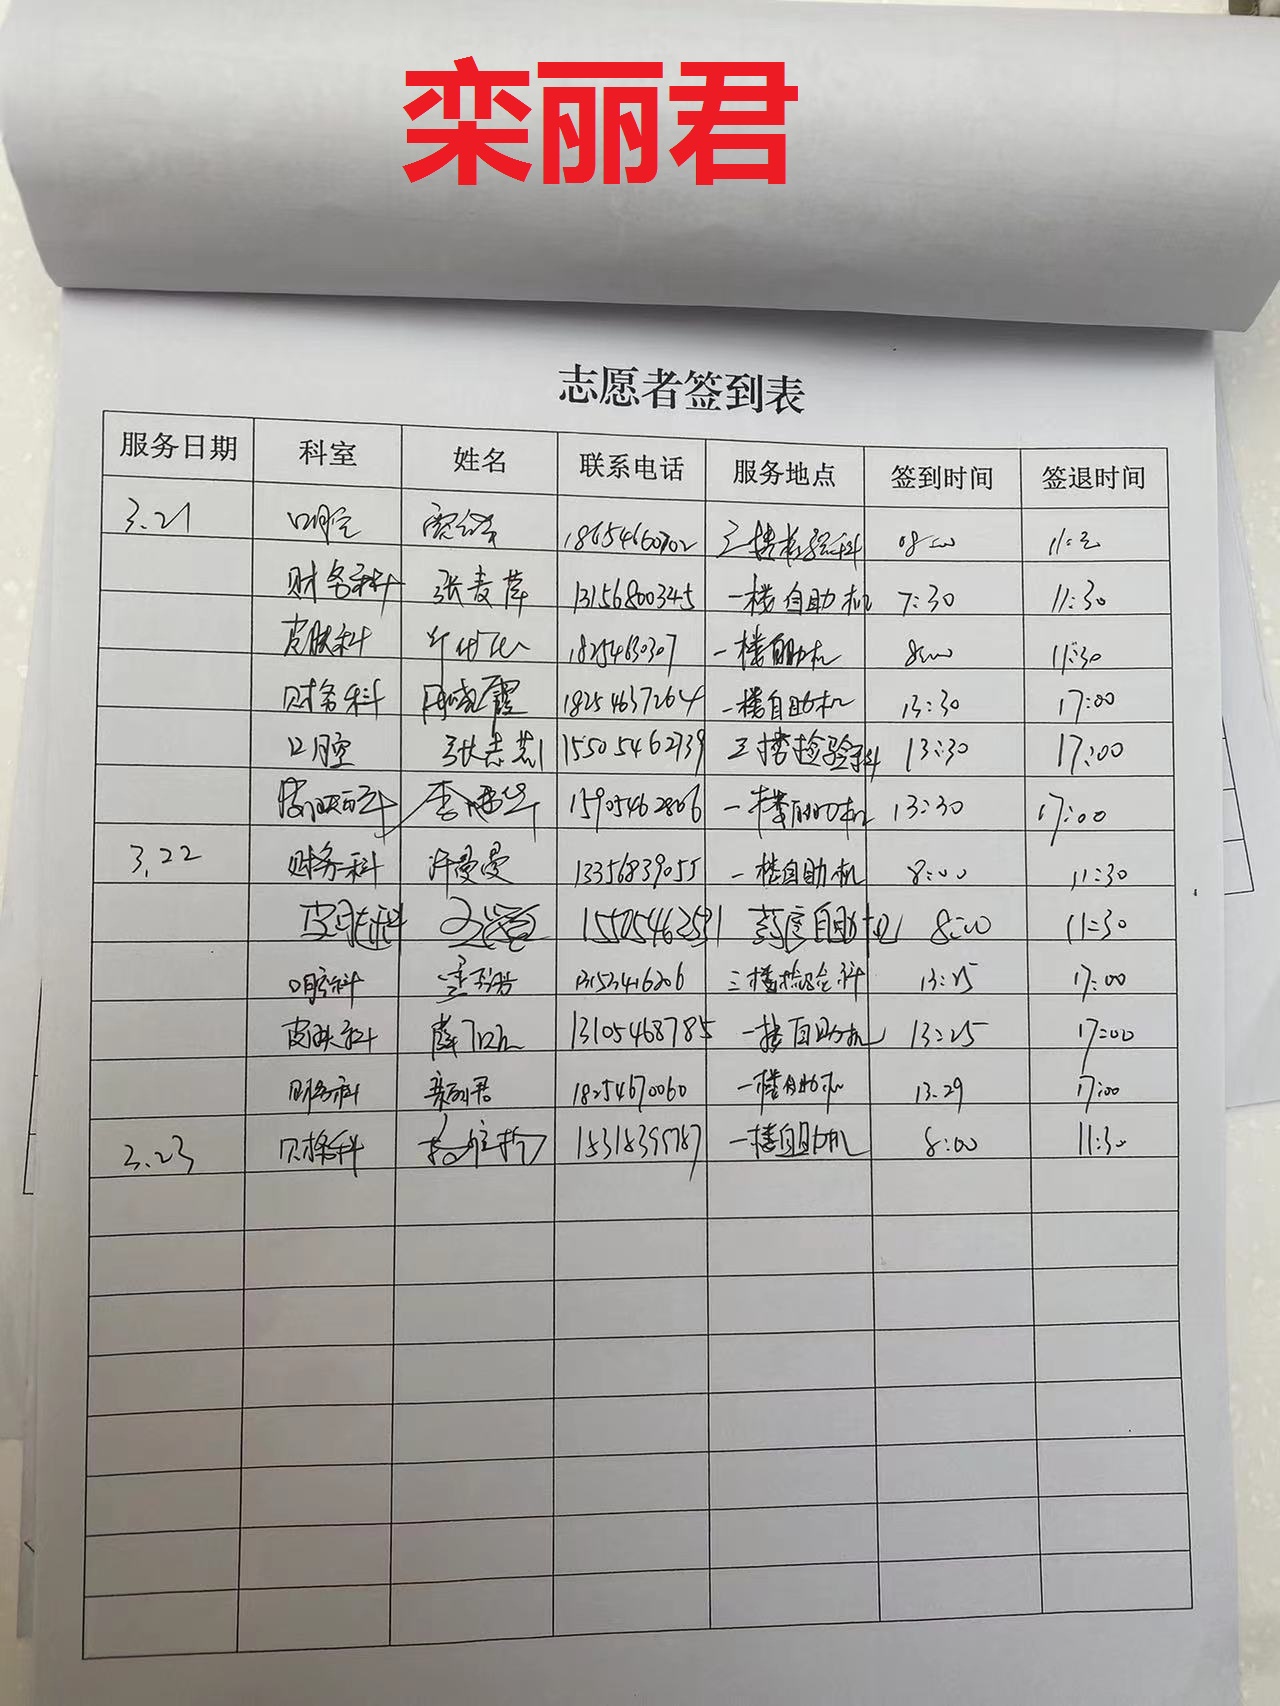 栾丽君
志愿者签到表
服务日期 科室 姓名 联系电话 服务地点 签到时间 签退时间
3.21 口腔 18654660702 三楼检验科 08:00
财务科 张麦萍 13156800345 一楼自助机 7:30 11:30
皮肤科 1825460307 一楼自助机 8:00 11:30
财务科 18254637264 一楼自助机 13:30 17:00
口腔 15505462739 三楼检验科 13:30 17:00
皮肤科 李 15905462806 一楼自助机 13:30 17:00
3.22 财务科 许曼曼 13356839055 一楼自助机 8:00 11:30
皮肤科 自助机 8:00 11:30
口腔科 三楼检验科 13:25 17:00
皮肤科 薛 13105468785 一楼自助机 13:25 17:00
财务科 栾丽君 18254670060 一楼自助机 13:29 17:00
3.23 一楼自助机 8:00 11:30